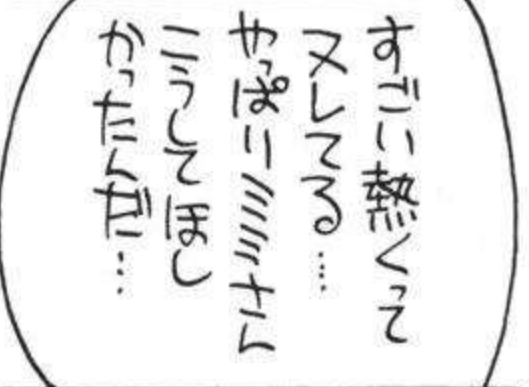 すごい熱くって
ヌレてる…
やっぱりミミさん
こうしてほし
かったんだ…